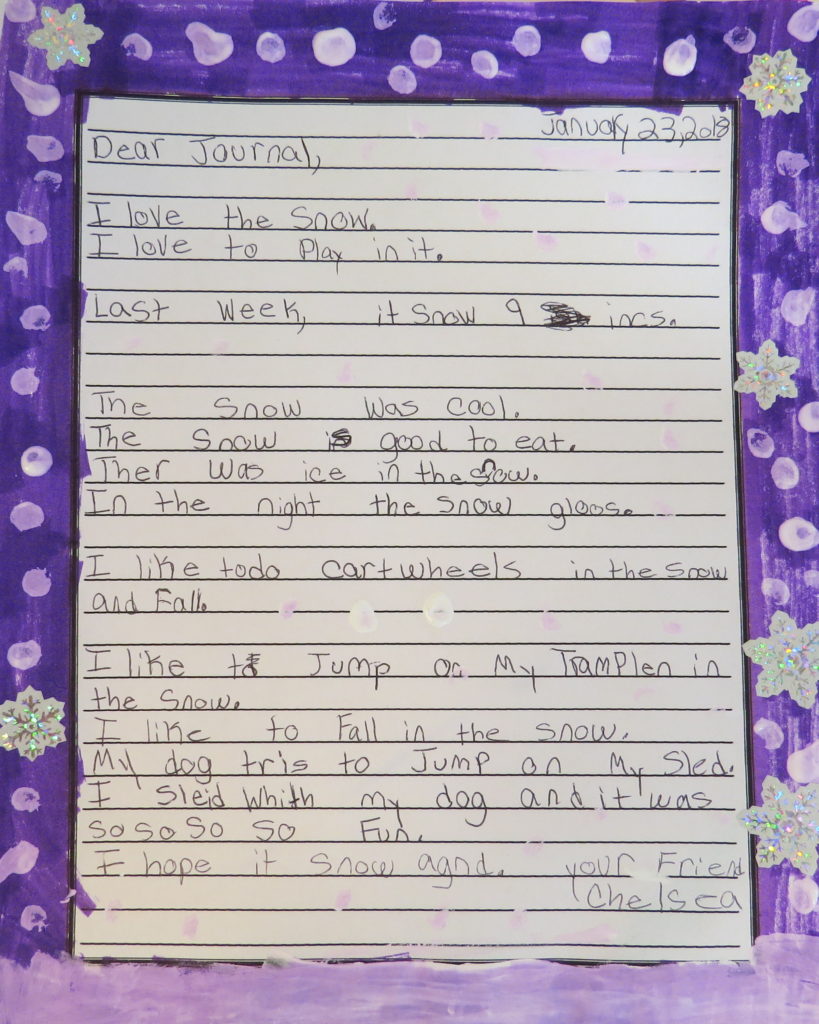 January 23, 2018
Dear Journal,
I love the Snow.
I love to Play in it.
Last Week, it Snow 9 incs.
The Snow Was cool.
The Snow is good to eat.
Ther Was ice in the snow.
In the night the Snow gloos.
I like todo cartwheels in the snow
and Fall.
I like to Jump on My Tramplen in
the Snow.
I like to Fall in the snow.
My dog tris to Jump on My Sled.
I Sleid Whith my dog and it was
So So So So Fun.
I hope it Snow agnd. your Friend
Chelsea